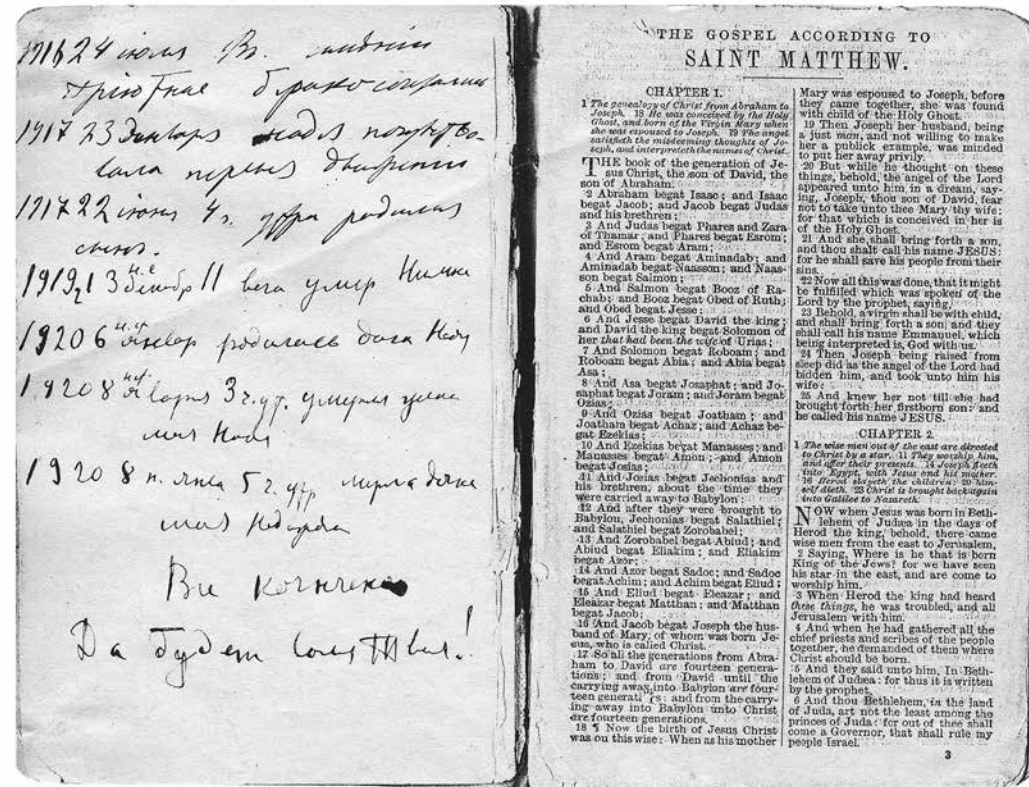 1916 24 июля В
бракосочетались
1917 23 Января Надя почувство-
вала первыя движения
1917 22 июня 4 ч. утра родился
сынок.
1919 13 н.с. декабр 11 веча умер Нимка
1920 6 н.ст. Январ родилась дочь Надя
1920 8 н.ст. Января 3 ч. ут. умерла жена
моя Надя
1920 8 н. Янва 5 ч. утр дочка
моя
Все кончено
Да будет воля Твоя!
THE GOSPEL ACCORDING TO
SAINT MATTHEW.
CHAPTER 1.
1 The genealogy of Christ from Abraham to
Joseph. 18 He was conceived by the Holy
Ghost, and born of the Virgin Mary when
she was espoused to Joseph. 19 The angel
satisfieth the misdeeming thoughts of Jo-
seph, and interpreteth the names of Christ.
THE book of the generation of Je-
sus Christ, the son of David, the
son of Abraham.
2 Abraham begat Isaac; and Isaac
begat Jacob; and Jacob begat Judas
and his brethren;
3 And Judas begat Phares and Zara
of Thamar; and Phares begat Esrom;
and Esrom begat Aram;
4 And Aram begat Aminadab; and
Aminadab begat Naasson; and Naas-
son begat Salmon;
5 And Salmon begat Booz of Ra-
chab; and Booz begat Obed of Ruth;
and Obed begat Jesse;
6 And Jesse begat David the king;
and David the king begat Solomon of
her that had been the wife of Urias;
7 And Solomon begat Roboam; and
Roboam begat Abia; and Abia begat
Asa;
8 And Asa begat Josaphat; and Jo-
saphat begat Joram; and Joram begat
Ozias;
9 And Ozias begat Joatham; and
Joatham begat Achaz; and Achaz be-
gat Ezekias;
10 And Ezekias begat Manasses; and
Manasses begat Amon; and Amon
begat Josias;
11 And Josias begat Jechonias and
his brethren, about the time they
were carried away to Babylon:
12 And after they were brought to
Babylon, Jechonias begat Salathiel;
and Salathiel begat Zorobabel;
13 And Zorobabel begat Abiud; and
Abiud begat Eliakim; and Eliakim
begat Azor;
14 And Azor begat Sadoc; and Sadoc
begat Achim; and Achim begat Eliud;
15 And Eliud begat Eleazar; and
Eleazar begat Matthan; and Matthan
begat Jacob;
16 And Jacob begat Joseph the hus-
band of Mary, of whom was born Je-
sus, who is called Christ.
17 So all the generations from Abra-
ham to David are fourteen genera-
tions; and from David until the
carrying away into Babylon are four-
teen generations; and from the carry-
ing away into Babylon unto Christ
are fourteen generations.
18 ¶ Now the birth of Jesus Christ
was on this wise: When as his mother
Mary was espoused to Joseph, before
they came together, she was found
with child of the Holy Ghost.
19 Then Joseph her husband, being
a just man, and not willing to make
her a publick example, was minded
to put her away privily.
20 But while he thought on these
things, behold, the angel of the Lord
appeared unto him in a dream, say-
ing, Joseph, thou son of David, fear
not to take unto thee Mary thy wife:
for that which is conceived in her is
of the Holy Ghost.
21 And she shall bring forth a son,
and thou shalt call his name JESUS:
for he shall save his people from their
sins.
22 Now all this was done, that it might
be fulfilled which was spoken of the
Lord by the prophet, saying,
23 Behold, a virgin shall be with child,
and shall bring forth a son, and they
shall call his name Emmanuel, which
being interpreted is, God with us.
24 Then Joseph being raised from
sleep did as the angel of the Lord had
bidden him, and took unto him his
wife:
25 And knew her not till she had
brought forth her firstborn son: and
he called his name JESUS.
CHAPTER 2.
1 The wise men out of the east are directed
to Christ by a star. 11 They worship him,
and offer their presents. 14 Joseph fleeth
into Egypt, with Jesus and his mother.
16 Herod slayeth the children: 20 him-
self dieth. 23 Christ is brought back again
into Galilee to Nazareth.
NOW when Jesus was born in Beth-
lehem of Judæa in the days of
Herod the king, behold, there came
wise men from the east to Jerusalem,
2 Saying, Where is he that is born
King of the Jews? for we have seen
his star in the east, and are come to
worship him.
3 When Herod the king had heard
these things, he was troubled, and all
Jerusalem with him.
4 And when he had gathered all the
chief priests and scribes of the people
together, he demanded of them where
Christ should be born.
5 And they said unto him, In Beth-
lehem of Judæa: for thus it is written
by the prophet,
6 And thou Bethlehem, in the land
of Juda, art not the least among the
princes of Juda: for out of thee shall
come a Governor, that shall rule my
people Israel.
3